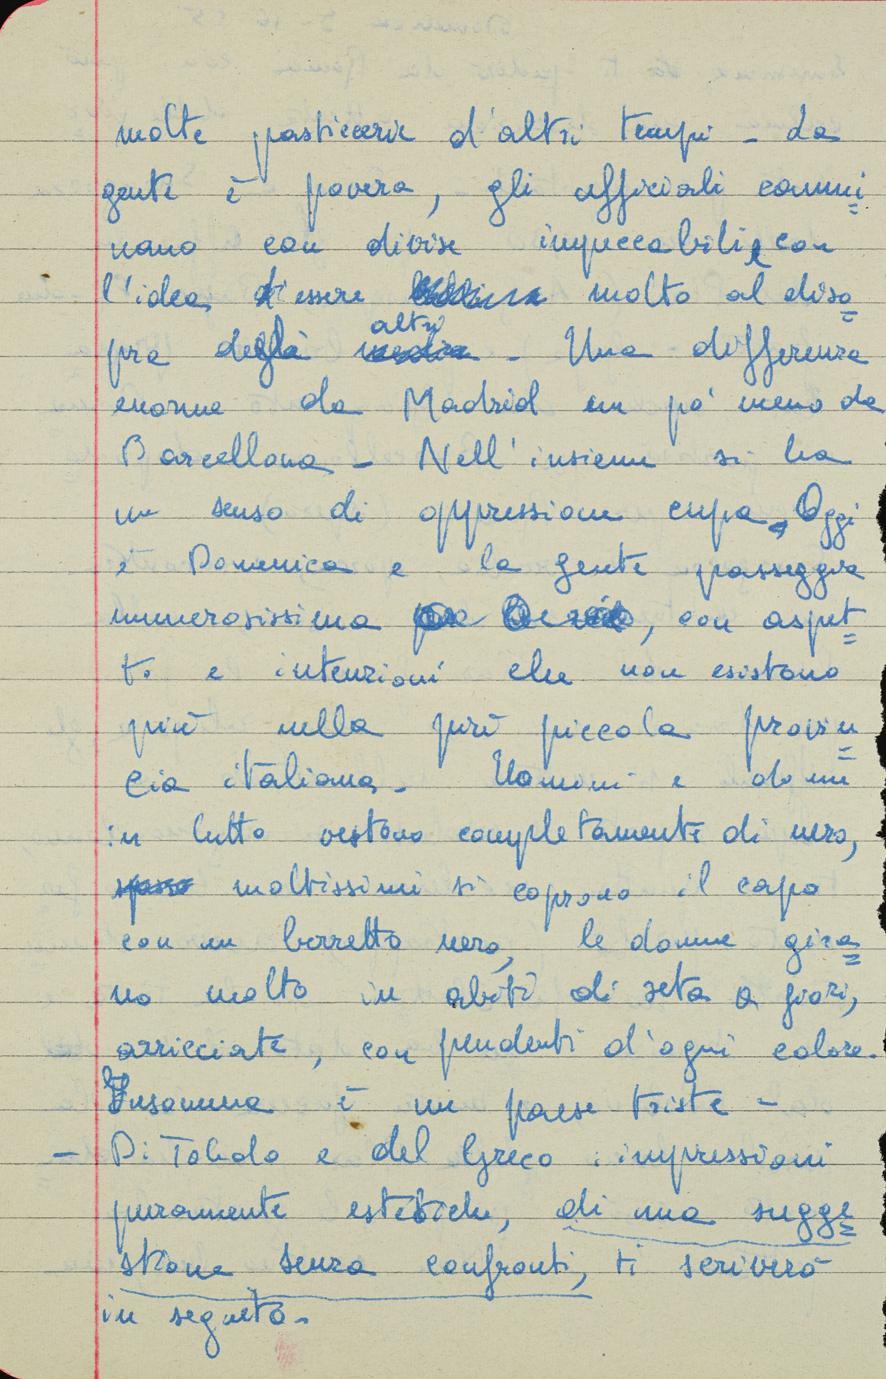 molte pasticcerie d'altri tempi - La
gente è povera, gli ufficiali cammi
nano con divise impeccabili e con
l'idea d'essere molto al diso
pra degli altri - Una differenza
enorme da Madrid un po' meno da
Barcellona - Nell'insieme si ha
un senso di oppressione cupa, Oggi
è Domenica e la gente passeggia
numerosissima, con aspet
ti e intenzioni che non esistono
più nella più piccola provin
cia italiana. Uomini e donne
in lutto vestono completamente di nero,
moltissimi si coprono il capo
con un berretto nero, le donne gira
no molto in abiti di seta a fiori,
arricciate, con pendenti d'ogni colore.
Insomma è un paese triste -
- Di Toledo e del Greco: impressioni
puramente estetiche, di una sugge
stione senza confronti, ti scriverò
in seguito.